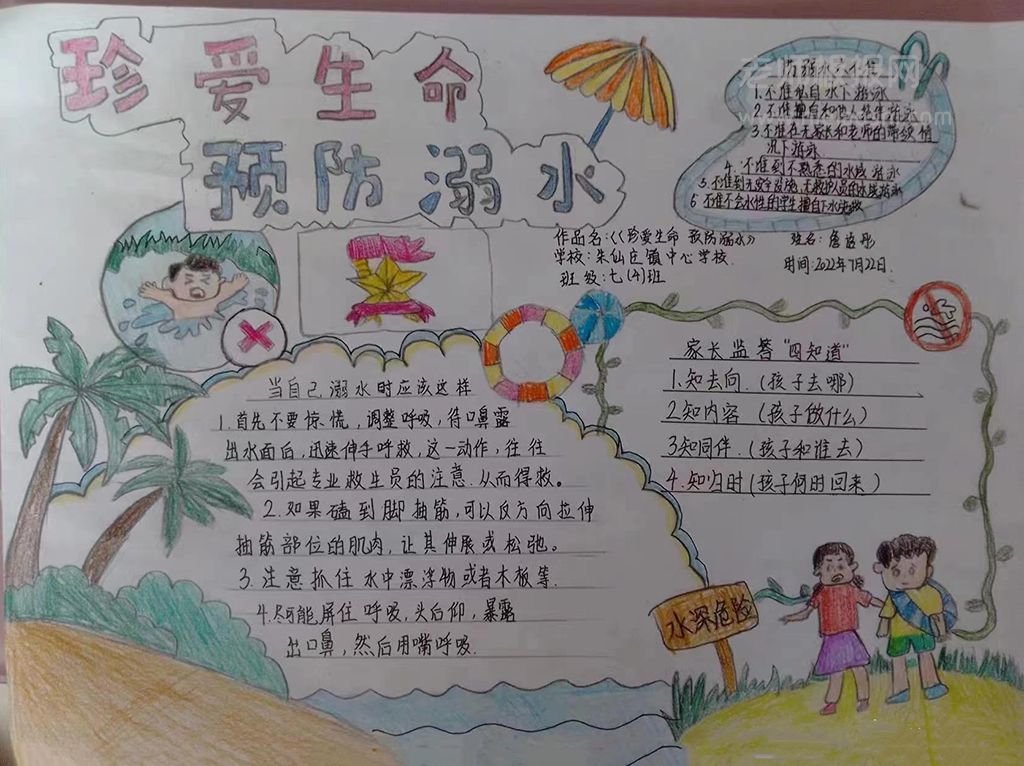 珍爱生命
预防溺水
防溺水六不准
1.不准私自下水游泳
2.不准擅自和他人结伴游泳
3.不准在无家长和老师的带领情
况下游泳
4.不准到不熟悉的水域游泳
5.不准到无安全设施、无救护人员的水域游泳
6.不准不会水性的学生擅自下水施救
作品名:《珍爱生命 预防溺水》
姓名:
学校:朱仙庄镇中心学校.
时间:2022年7月22日.
班级:七(4)班
当自己溺水时应该这样
1.首先不要惊慌,调整呼吸,待口鼻露
出水面后,迅速伸手呼救,这一动作,往往
会引起专业救生员的注意.从而得救。
2.如果碰到脚抽筋,可以反方向拉伸
抽筋部位的肌肉,让其伸展或松弛。
3.注意抓住水中漂浮物或者木板等.
4.尽可能屏住呼吸,头后仰,暴露
出口鼻,然后用嘴呼吸.
家长监督"四知道"
1.知去向.(孩子去哪)
2知内容(孩子做什么)
3知同伴.(孩子和谁去)
4.知归时(孩子何时回来)
水深危险